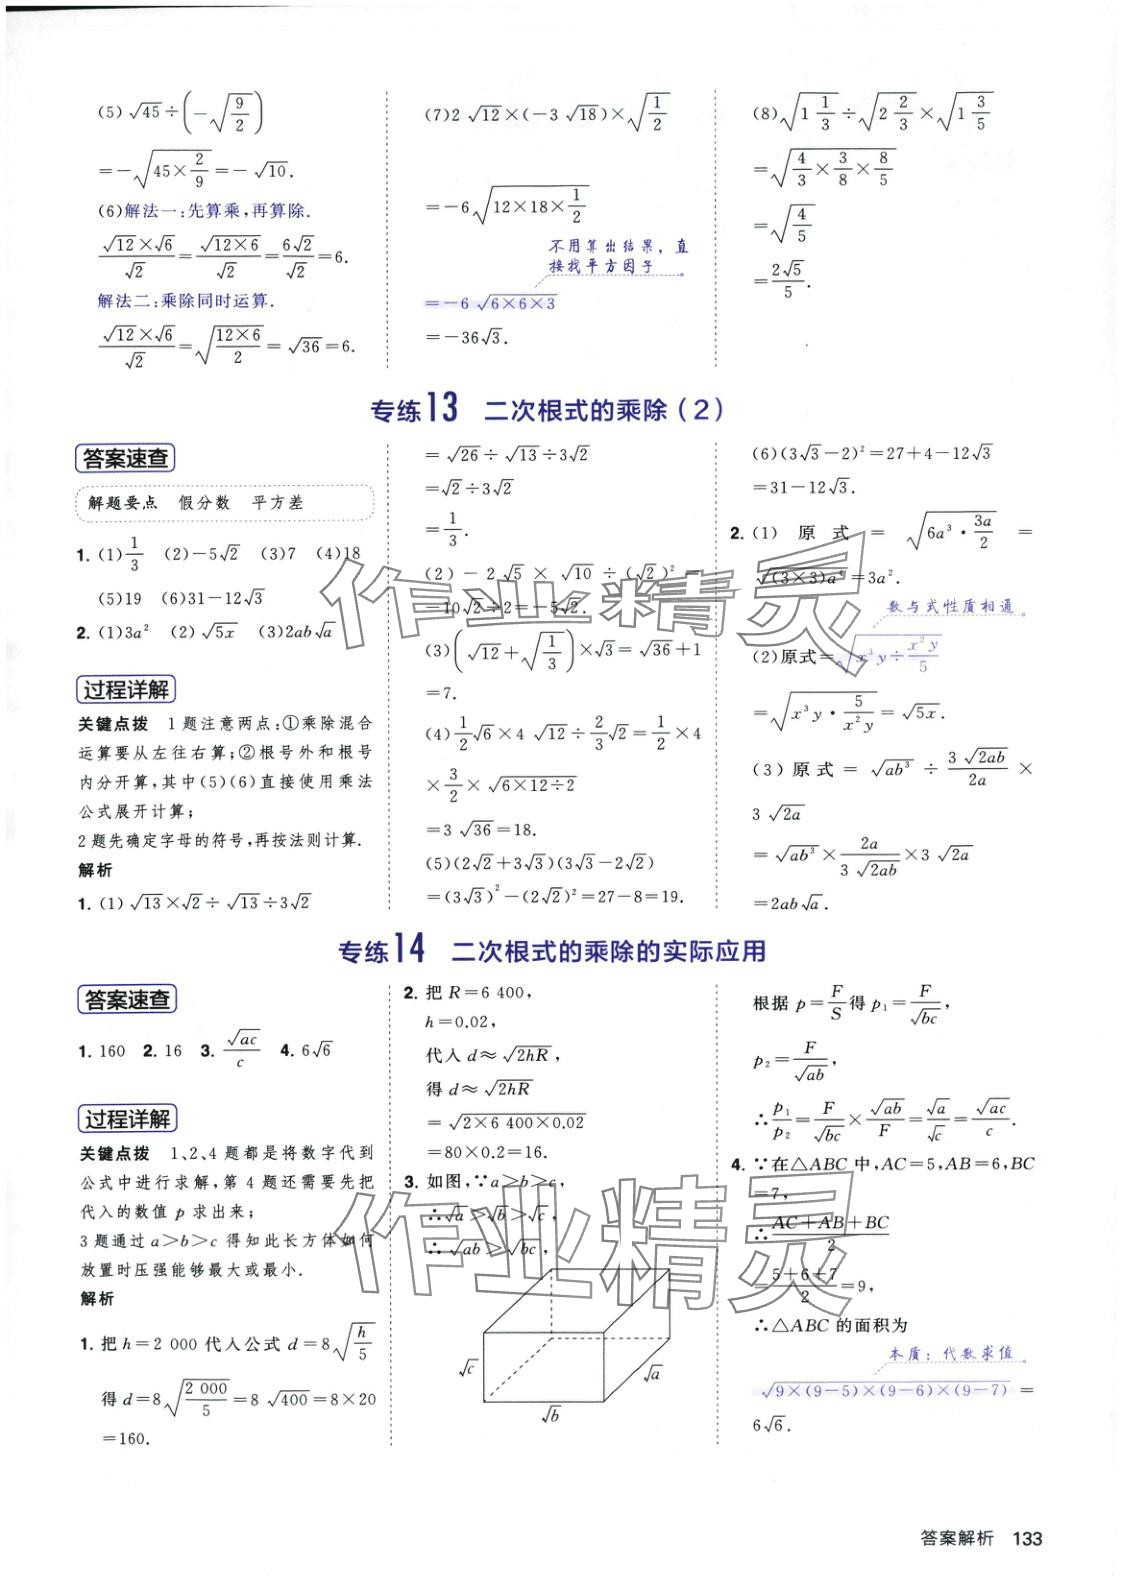 (5)√45÷(-√(9/2))
=-√(45×2/9)=-√10.
(6)解法一:先算乘,再算除.
(√12×√6)/√2=√(12×6)/√2=6√2/√2=6.
解法二:乘除同时运算.
(√12×√6)/√2=√(12×6/2)=√36=6.
(7)2√12×(-3√18)×√(1/2)
=-6√(12×18×1/2)
不用算出结果，直
接找平方因子。
=-6√(6×6×3)
=-36√3.
(8)√(1 1/3)÷√(2 2/3)×√(1 3/5)
=√(4/3×3/8×8/5)
=√(4/5)
=2√5/5.
专练13 二次根式的乘除(2)
答案速查
解题要点 假分数 平方差
1. (1)1/3 (2)-5√2 (3)7 (4)18
(5)19 (6)31-12√3
2. (1)3a² (2)√5x (3)2ab√a
过程详解
关键点拨 1题注意两点:①乘除混合
运算要从左往右算;②根号外和根号
内分开算,其中(5)(6)直接使用乘法
公式展开计算;
2题先确定字母的符号,再按法则计算.
解析
1. (1)√13×√2÷√13÷3√2
=√26÷√13÷3√2
=√2÷3√2
=1/3.
(2)-2√5×√10÷(√2)²=
-10√2÷2=-5√2.
(3)(√12+√(1/3))×√3=√36+1
=7.
(4)1/2√6×4√12÷2/3√2=1/2×4
×3/2×√(6×12÷2)
=3√36=18.
(5)(2√2+3√3)(3√3-2√2)
=(3√3)²-(2√2)²=27-8=19.
(6)(3√3-2)²=27+4-12√3
=31-12√3.
2. (1)原式=√(6a³·3a/2)=
√((3×3)a⁴)=3a².
数与式性质相通。
(2)原式=√(x³y÷x²y/5)
=√(x³y·5/(x²y))=√5x.
(3)原式=√(ab³)÷3√(2ab)/2a×
3√2a
=√(ab³)×2a/(3√(2ab))×3√2a
=2ab√a.
作业精灵
专练14 二次根式的乘除的实际应用
答案速查
1. 160 2. 16 3. √(ac)/c 4. 6√6
过程详解
关键点拨 1、2、4题都是将数字代到
公式中进行求解,第4题还需要先把
代入的数值p求出来;
3题通过a>b>c得知此长方体如何
放置时压强能够最大或最小.
解析
1. 把h=2 000代入公式d=8√(h/5)
得d=8√(2 000/5)=8√400=8×20
=160.
2. 把R=6 400,
h=0.02,
代入d≈√(2hR),
得d≈√(2hR)
=√(2×6 400×0.02)
=80×0.2=16.
3. 如图,∵a>b>c,
∴√a>√b>√c,
∴√(ab)>√(bc),
√c
√a
√b
根据p=F/S得p₁=F/√(bc),
p₂=F/√(ab),
∴p₁/p₂=F/√(bc)×√(ab)/F=√a/√c=√(ac)/c.
4. ∵在△ABC中,AC=5,AB=6,BC
=7,
∴(AC+AB+BC)/2
=(5+6+7)/2=9,
∴△ABC的面积为
本质：代数求值。
√(9×(9-5)×(9-6)×(9-7))=
6√6.
作业精灵
答案解析 133